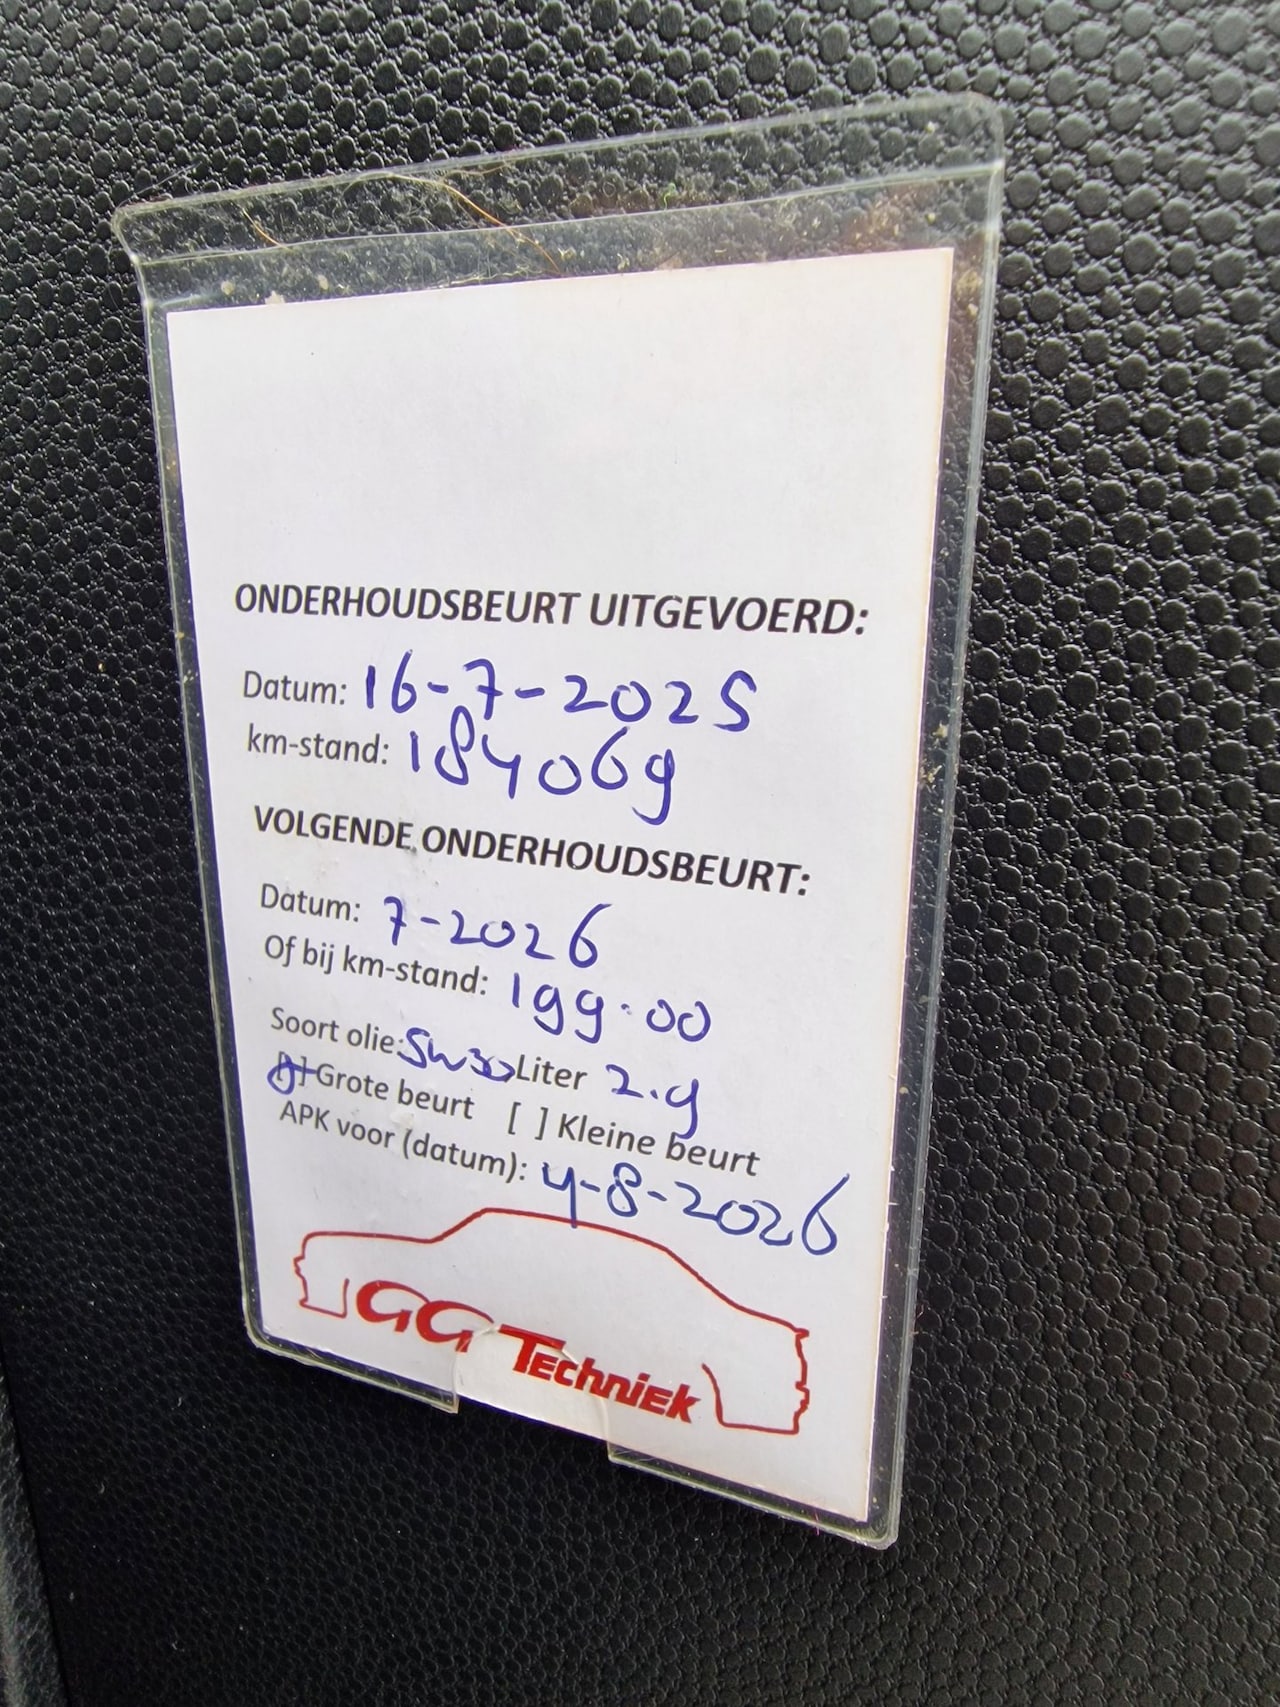 ONDERHOUDSBEURT UITGEVOERD:
Datum: 16-7-2025
km-stand: 184069
VOLGENDE ONDERHOUDSBEURT:
Datum: 7-2026
Of bij km-stand: 199.00
Soort olie: 5w30 Liter 2.9
[ ] Grote beurt [ ] Kleine beurt
APK voor (datum): 4-8-2026
GG Techniek